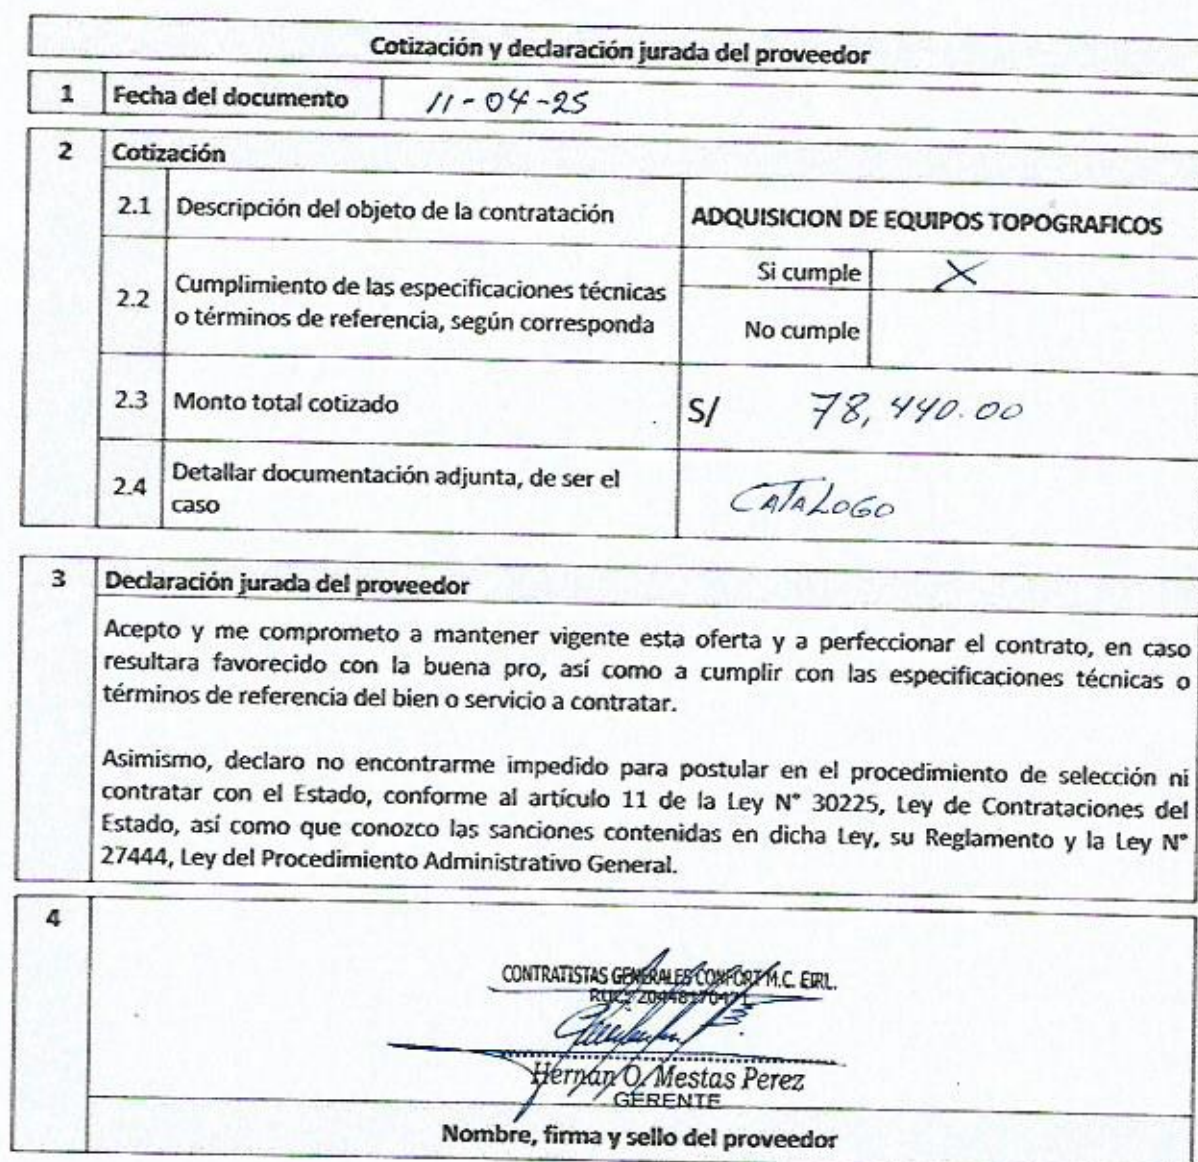 Cotización y declaración jurada del proveedor
1 Fecha del documento 11-04-25
2 Cotización
2.1 Descripción del objeto de la contratación ADQUISICION DE EQUIPOS TOPOGRAFICOS
2.2 Cumplimiento de las especificaciones técnicas
o términos de referencia, según corresponda
Si cumple X
No cumple
2.3 Monto total cotizado S/ 78,440.00
2.4 Detallar documentación adjunta, de ser el
caso
CATALOGO
3 Declaración jurada del proveedor
Acepto y me comprometo a mantener vigente esta oferta y a perfeccionar el contrato, en caso
resultara favorecido con la buena pro, así como a cumplir con las especificaciones técnicas o
términos de referencia del bien o servicio a contratar.
Asimismo, declaro no encontrarme impedido para postular en el procedimiento de selección ni
contratar con el Estado, conforme al artículo 11 de la Ley N° 30225, Ley de Contrataciones del
Estado, así como que conozco las sanciones contenidas en dicha Ley, su Reglamento y la Ley N°
27444, Ley del Procedimiento Administrativo General.
4
CONTRATISTAS GENERALES CONFORT M.C. EIRL.
Hernán O. Mestas Perez
GERENTE
Nombre, firma y sello del proveedor